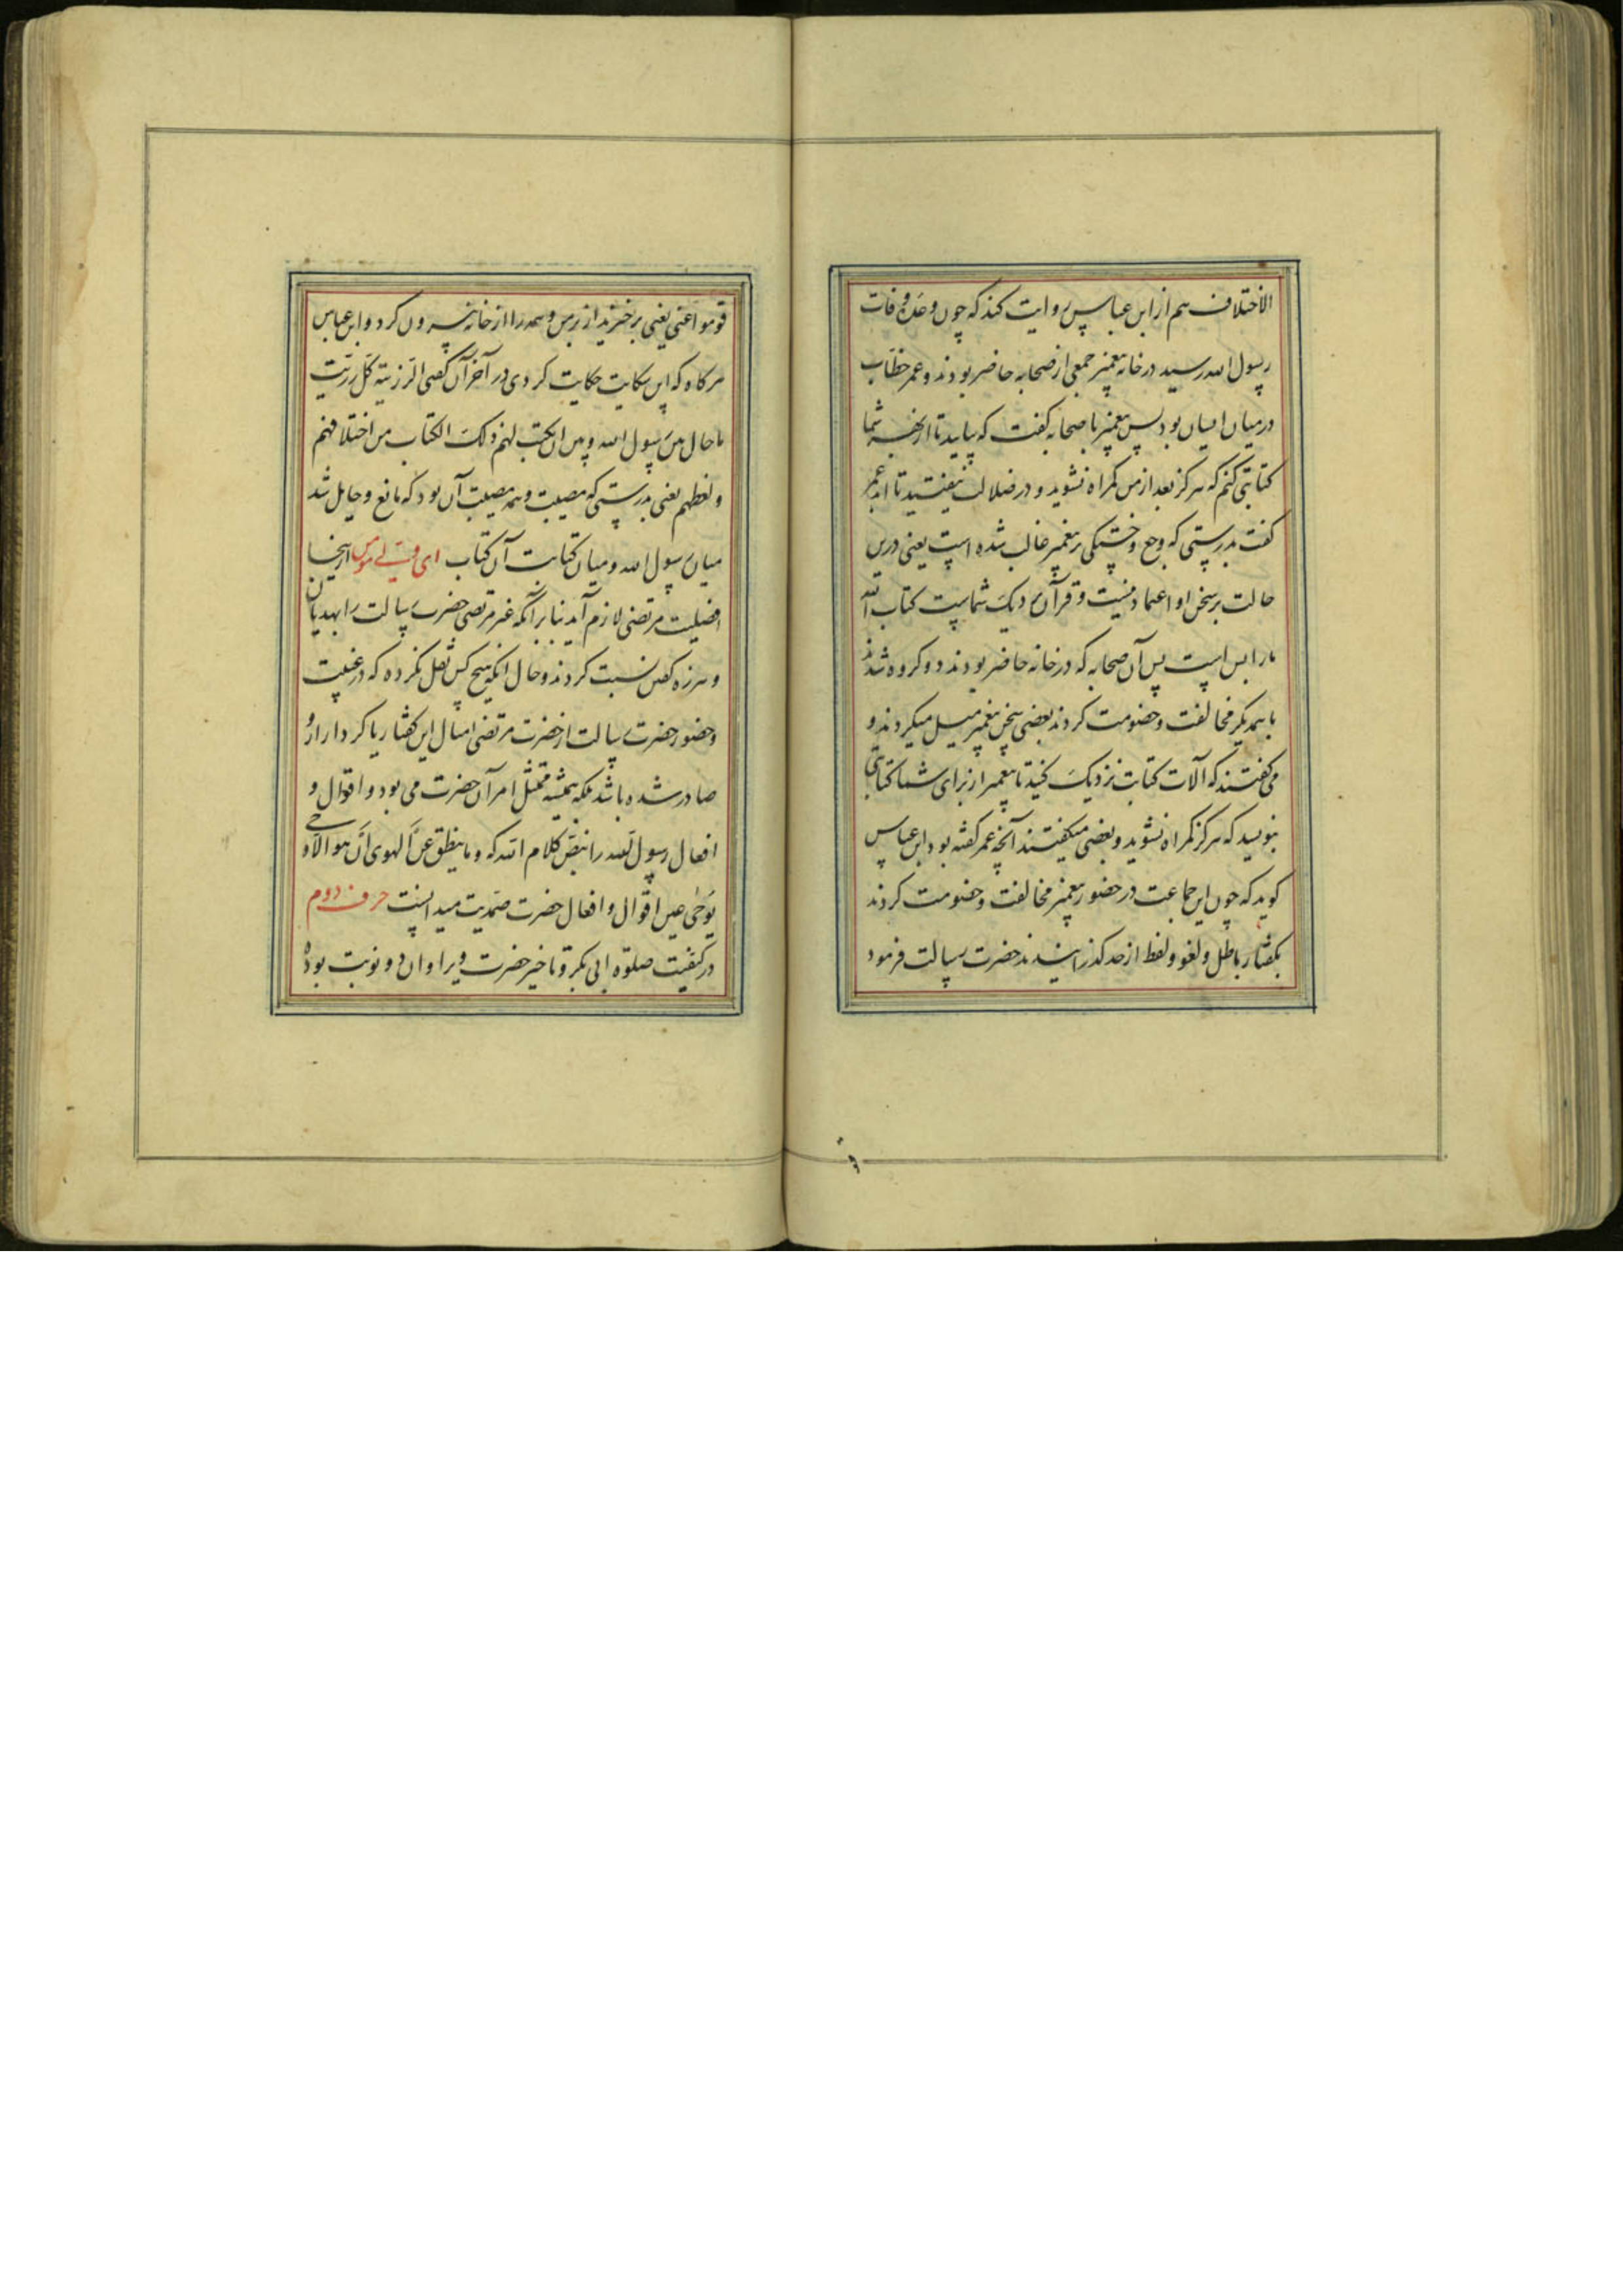 الاختلاف هم از ابن عباس روایت کند که چون وعدهٔ وفات
رسول الله رسید در خانه پیغمبر جمعی از صحابه حاضر بودند و عمر خطاب
در میان ایشان بود پس پیغمبر با صحابه کفت که بیایید تا از بهر شما
کتابتی کنم که هرکز بعد از من کمراه نشوید و در ضلالت نیفتید تا ابد عمر
کفت بدرستی که وجع و خستکی بر پیغمبر غالب شده است یعنی درین
حالت بر سخن او اعتماد نیست و قرآن نزدیک شماست کتاب الله
ما را بس است پس آن صحابه که در خانه حاضر بودند دو کروه شدند
با یکدیکر مخالفت و خصومت کردند بعضی بسخن پیغمبر میل میکردند و
می کفتند که آلات کتابت نزدیک کنید تا پیغمبر از برای شما کتابتی
بنویسد که هرکز کمراه نشوید و بعضی میکفتند آنچه عمر کفته بود ابن عباس
کوید که چون این جماعت در حضور پیغمبر مخالفت و خصومت کردند
بکفتار باطل و لغو و لغط از حد کذرانیدند حضرت رسالت فرمود
قوموا عنی یعنی برخیزید از بر من و همه را از خانه بیرون کرد و ابن عباس
هرکاه که این حکایت کردی در آخر آن کفتی الرزیة کل رزیت
ما حال بین رسول الله و بین ان یکتب لهم ذلک الکتاب من اختلافهم
و لغطهم یعنی بدرستی که مصیبت و همه مصیبت آن بود که مانع و حایل شد
میان رسول الله و میان کتابت آن کتاب ای ولی مومن از اینجا
افضلیت مرتضی لازم آید بنابر آنکه غیر مرتضی حضرت رسالت را بهذیان
و هرزه کفتن نسبت کردند و حال انکه هیچ کس نقل نکرده که در غیبت
و حضور حضرت رسالت از حضرت مرتضی امثال این کفتار یا کردار ازو
صادر شده باشد بلکه همیشه متمثل امر آن حضرت می بود و اقوال و
افعال رسول الله را بنص کلام الله که و ما ینطق عن الهوی ان هو الا وحی
یوحی عین اقوال و افعال حضرت صمدیت میدانست حرف دوم
در کیفیت صلوة ابی بکر و تاخیر حضرت ویرا و ان دو نوبت بوده